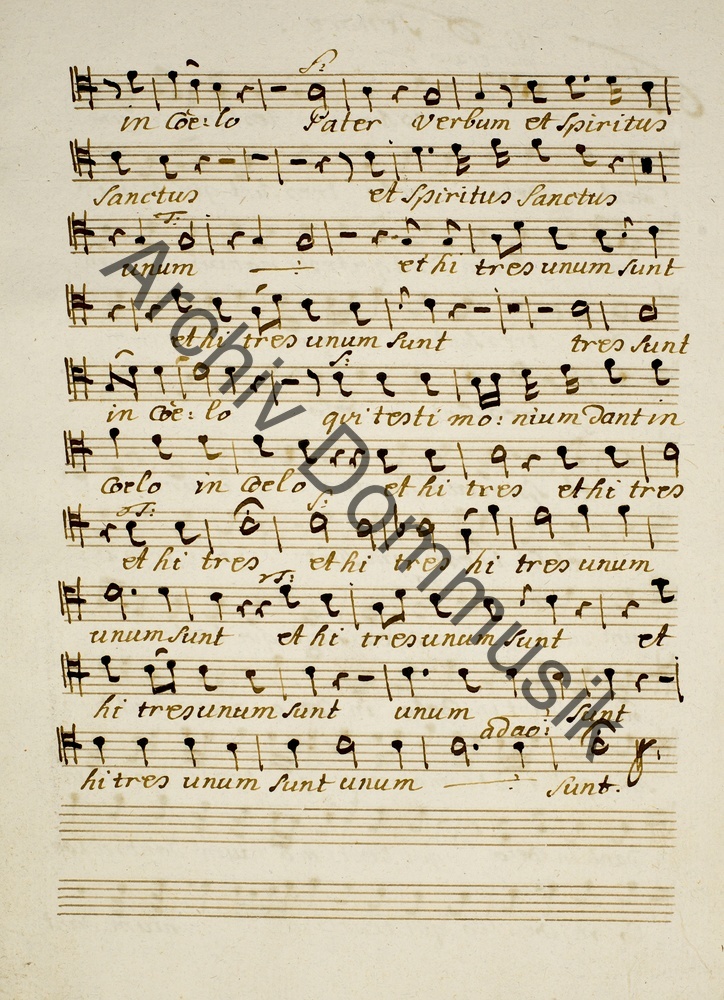 S:
in Cœ:lo Pater Verbum et Spiritus
Sanctus et Spiritus Sanctus
T:
unum et hi tres unum sunt
et hi tres unum sunt tres sunt
S:
in Cœ: lo qui testi mo: nium dant in
Coelo in Coelo et hi tres et hi tres
T: S:
et hi tres et hi tres hi tres unum
T:
unum sunt et hi tres unum sunt et
hi tres unum sunt unum sunt
adao:
hi tres unum sunt unum sunt.
Archiv Dommusik